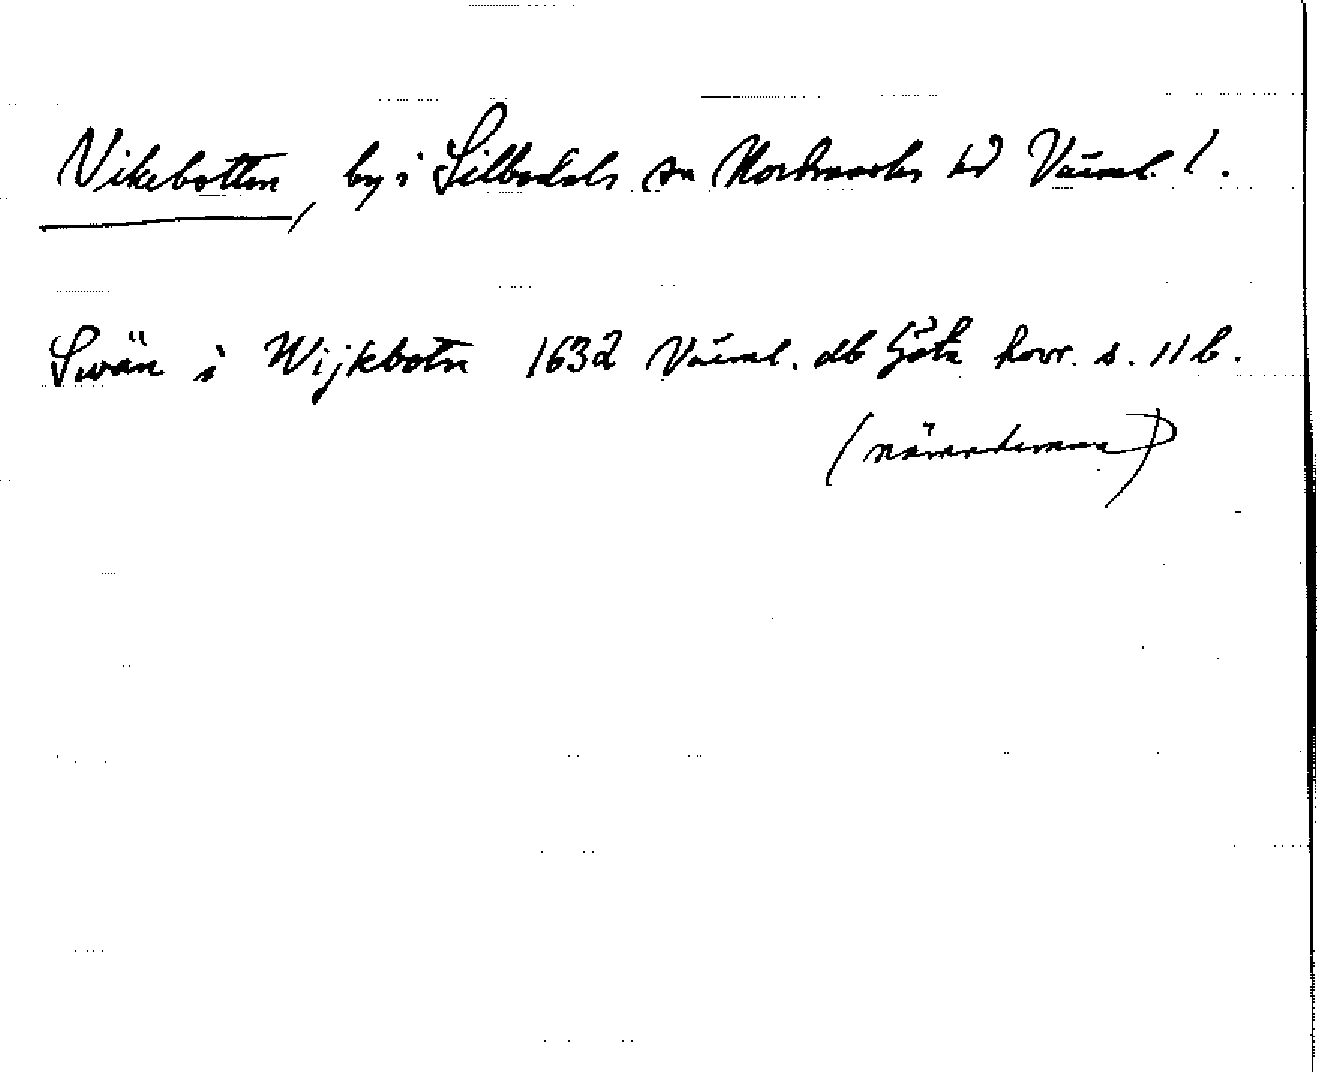 Vikebotten, by i Silbodals sn Nordmarks hd Värml. l.
Swän i Wijkbotn 1632 Värml. db Göta hovr. s. 11 b.
(nämndeman)